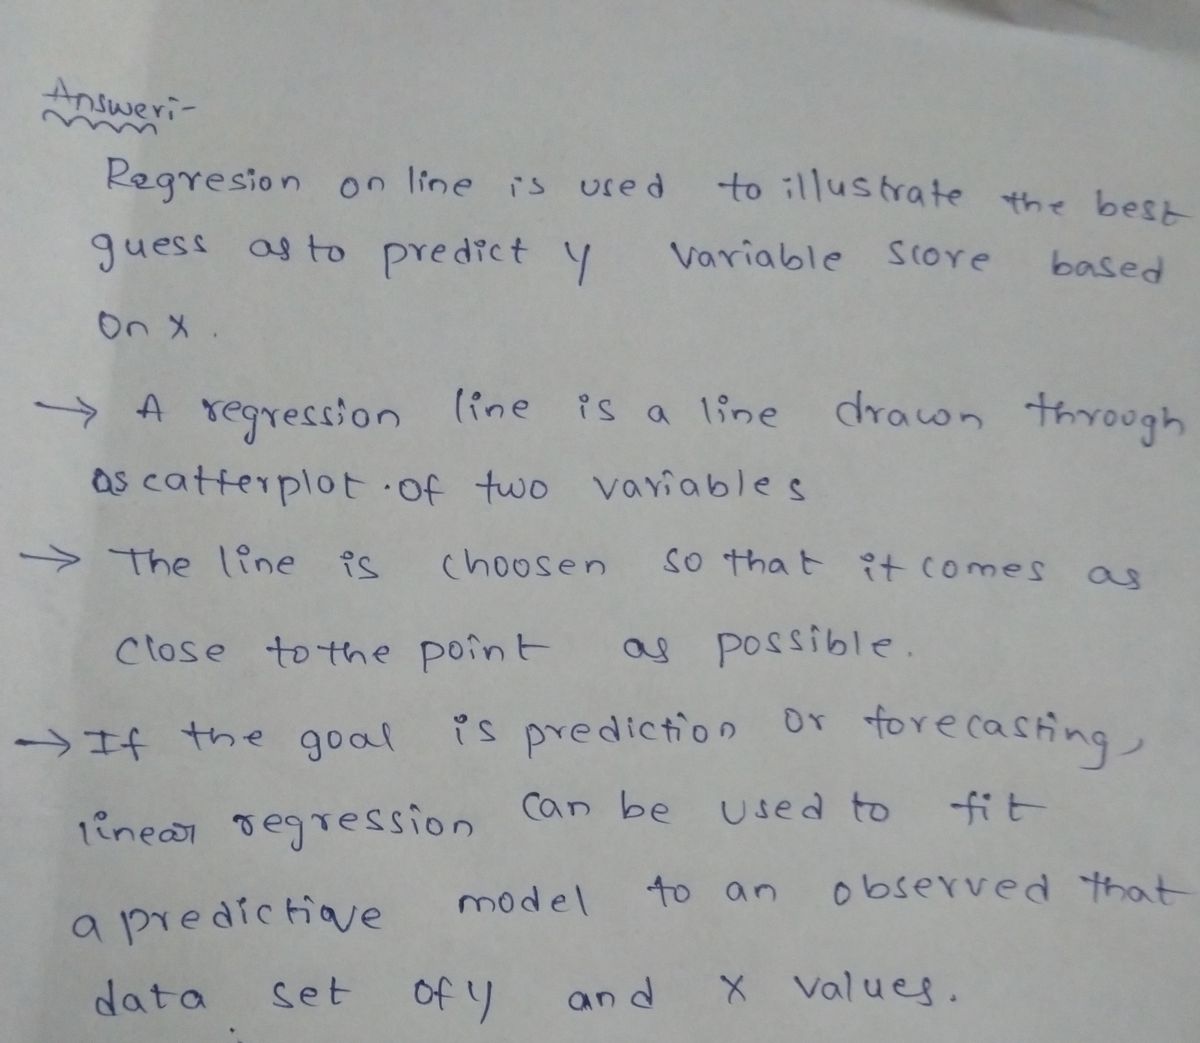 Answer:-
Regresion on line is used to illustrate the best
guess as to predict y variable score based
on x.
→ A regression line is a line drawn through
as catterplot .of two variables
→ The line is choosen so that it comes as
close to the point as possible.
→ If the goal is prediction or forecasting,
linear regression can be used to fit
a predictive model to an observed that
data set of y and x values.